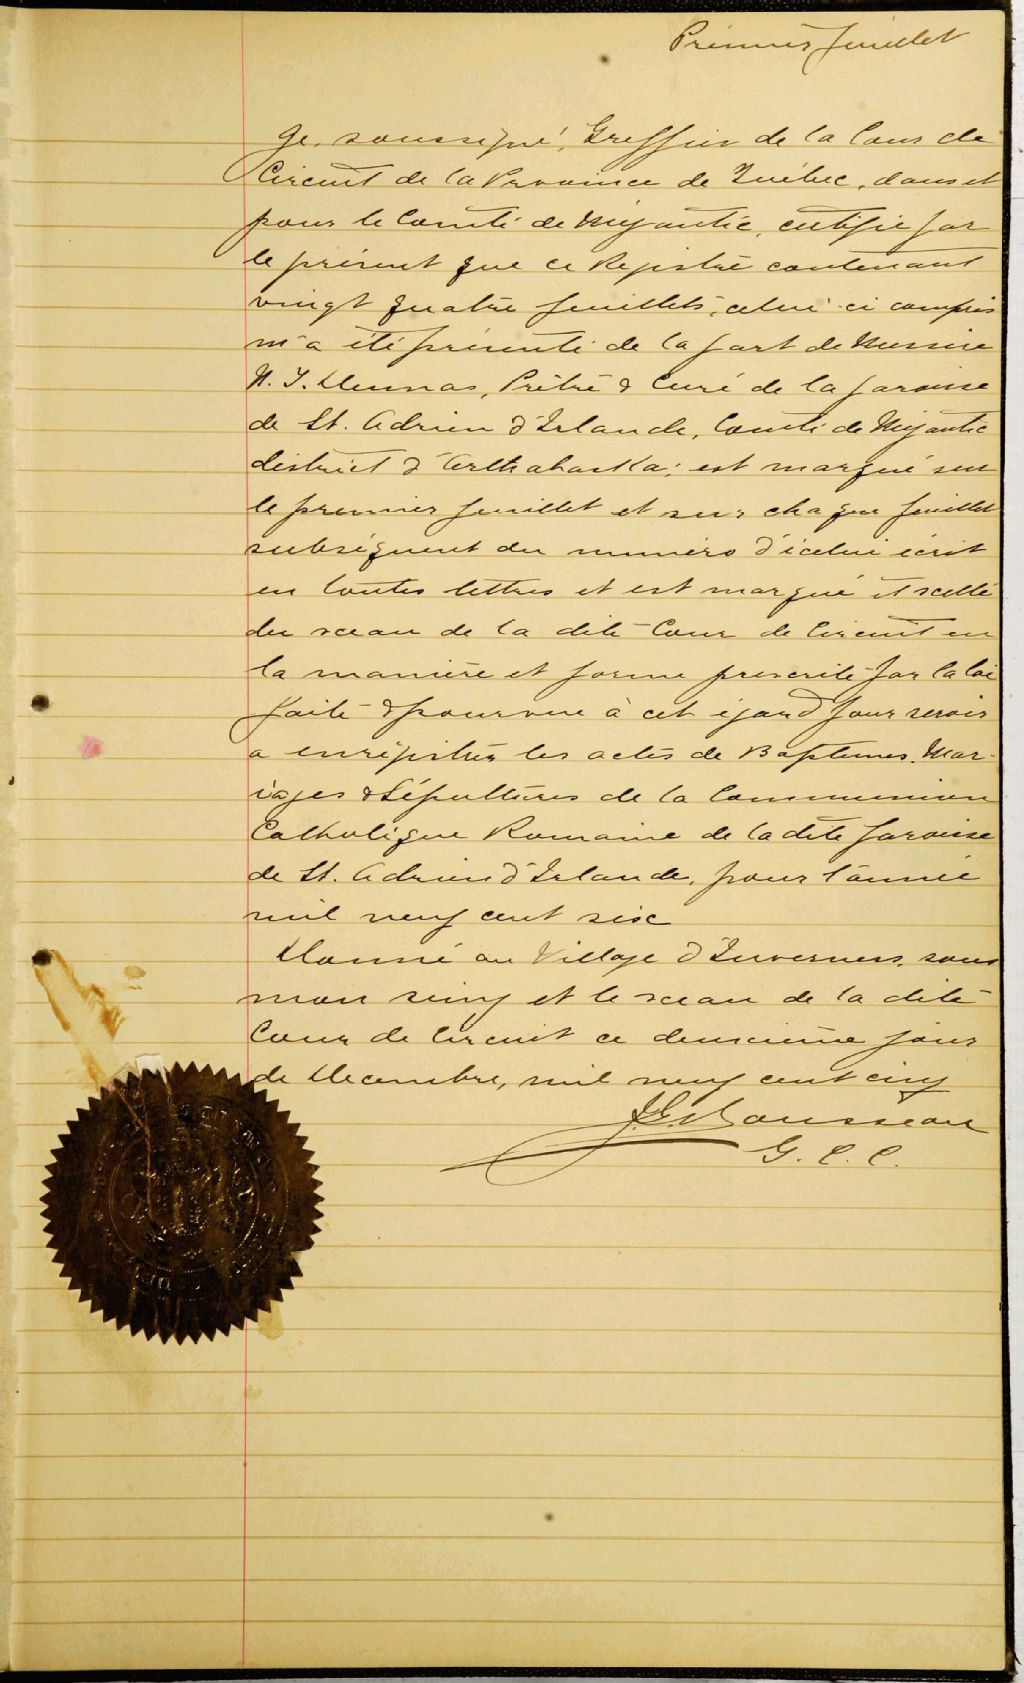 Premier feuillet
Je, soussigné, Greffier de la Cour de
Circuit de la Province de Québec, dans et
pour le Comté de Mégantic, certifie par
le présent que ce Registre contenant
vingt quatre feuillets, celui-ci compris
m'a été présenté de la part de Messire
Prêtre & Curé de la paroisse
de St. Adrien d'Irlande, Comté de Mégantic
district d'Arthabaska; est marqué sur
le premier feuillet et sur chaque feuillet
subséquent du numéro d'icelui écrit
en toutes lettres et est marqué et scellé
du sceau de la dite Cour de Circuit en
la manière et forme prescrite par la loi
faite & pourvue à cet égard pour servir
a enrégistrer les actes de Baptemes, Mar-
iages & Sépultures de la Communion
Catholique Romaine de la dite paroisse
de St. Adrien d'Irlande, pour l'année
mil neuf cent six
Donné au Village d'Inverness, sous
mon seing et le sceau de la dite
Cour de Circuit ce deuxième jour
de Decembre, mil neuf cent cinq
Rousseau
G. C. C.